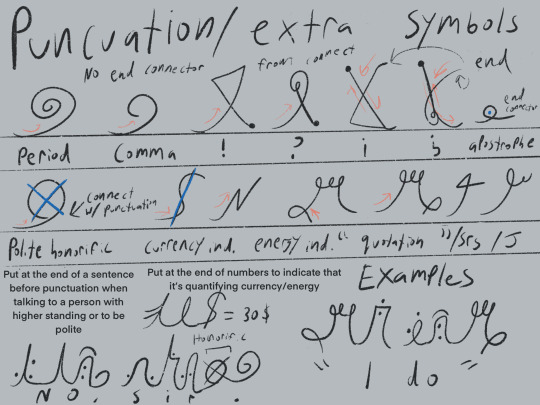 Puncuation/ extra Symbols
No end connector
from connect
end
end connector
Period Comma ! ? i ¿ apostrophe
connect w/ punctuation
Polite honorific currency ind. energy ind. “ quotation ”/srs /J
Put at the end of a sentence
before punctuation when
talking to a person with
higher standing or to be
polite
Put at the end of numbers to indicate that
it's quantifying currency/energy
= 30$
Examples
Honorific
" I do "
N o , s i r .